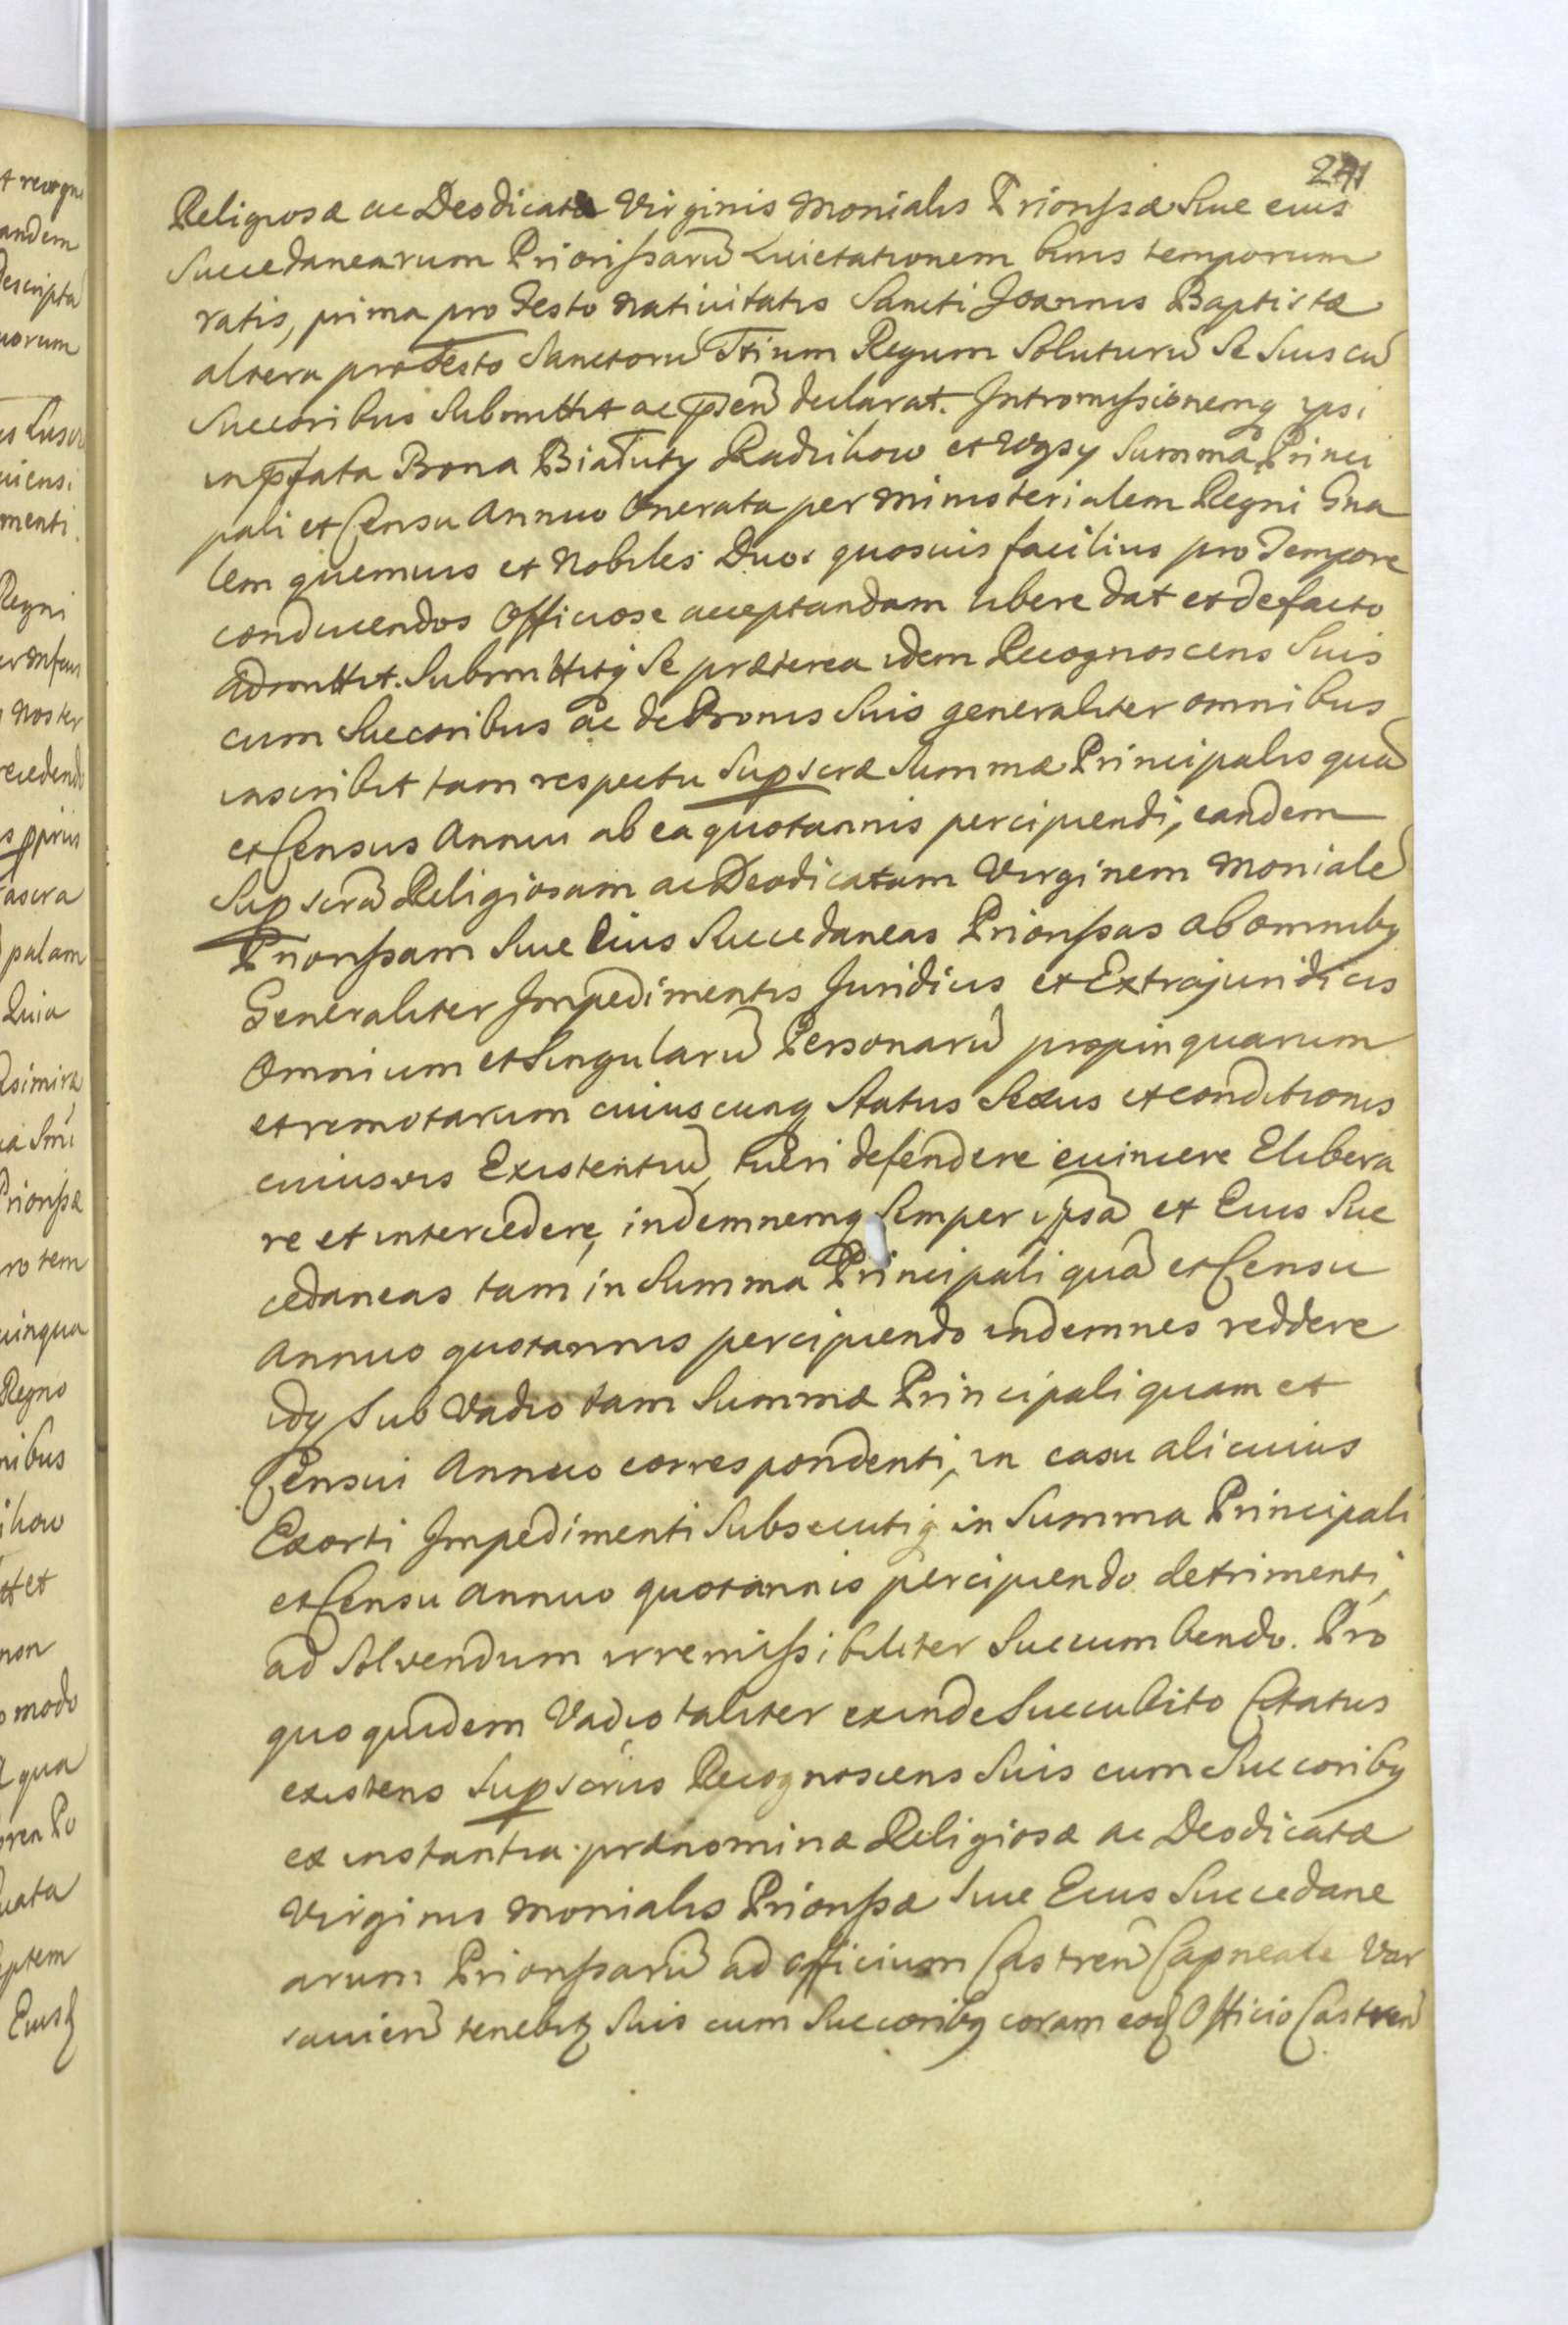 241
Religiosæ ac Deodicatæ Virginis Monialis Priorissæ Siue eius
Succedanearum Priorissarũ Quietationem binis temporum
ratis, prima pro Festo Natiuitatis Sancti Joannis Baptistæ
altera pro Festo Sanctorũ Trium Regum Soluturũ Se Suis cũ
Succoribus Submittit ac p̃sen̄ declarat. Intromissionemq ipsi
in p̃fata Bona Biaduty Radzihow et Wysy Summa Princi
pali et Censu Annuo Onerata per Ministerialem Regni Gna
lem quemuis et Nobiles Duos quosuis facilius pro Tempore
conducendos Officiose acceptandam libere dat et de facto
admittit. Submittitq Se præterea idem Recognoscens Suis
cum Succoribus ac de Bonis Suis generaliter omnibus
inscribit tam respectu Supscræ Summæ Principalis quã
et Census Annui ab ea quotannis percipiendi, eandem
Supscrã Religiosam ac Deodicatam Virginem Monialẽ
Priorissam Siue Eius Succedaneas Priorissas ab omnibq
Generaliter Impedimentis Juridicis et Extrajuridicis
Omnium et Singularũ Personarũ propinquarum
et remotarum cuiuscunq Status Sexus et conditionis
cuiusuis Existentiũ, tueri defendere euincere Elibera
re et intercedere, indemnemq Semper ipsã et Eius Suc
cedaneas tam in Summa Principali quã et Censu
Annuo quotannis percipiendo indemnes reddere
idq Sub Vadio tam Summæ Principali quam et
Censui Annuo correspondenti, in casu alicuius
Exorti Impedimenti Subsecutiq in Summa Principali
et Censu Annuo quotannis percipiendo detrimenti,
ad Soluendum irremissibiliter Succumbendo. Pro
quo quidem Vadio taliter exinde Succubito Citatus
existens Supscrius Recognoscens Suis cum Succoribq
ex instantia prænominæ Religiosæ ac Deodicatæ
Virginis Monialis Priorissæ Siue Eius Succedane
arum Priorissarũ ad Officium Castren̄ Capneale Var
sauien̄ tenebitq Suis cum Succoribq coram eoq Officio Castren̄